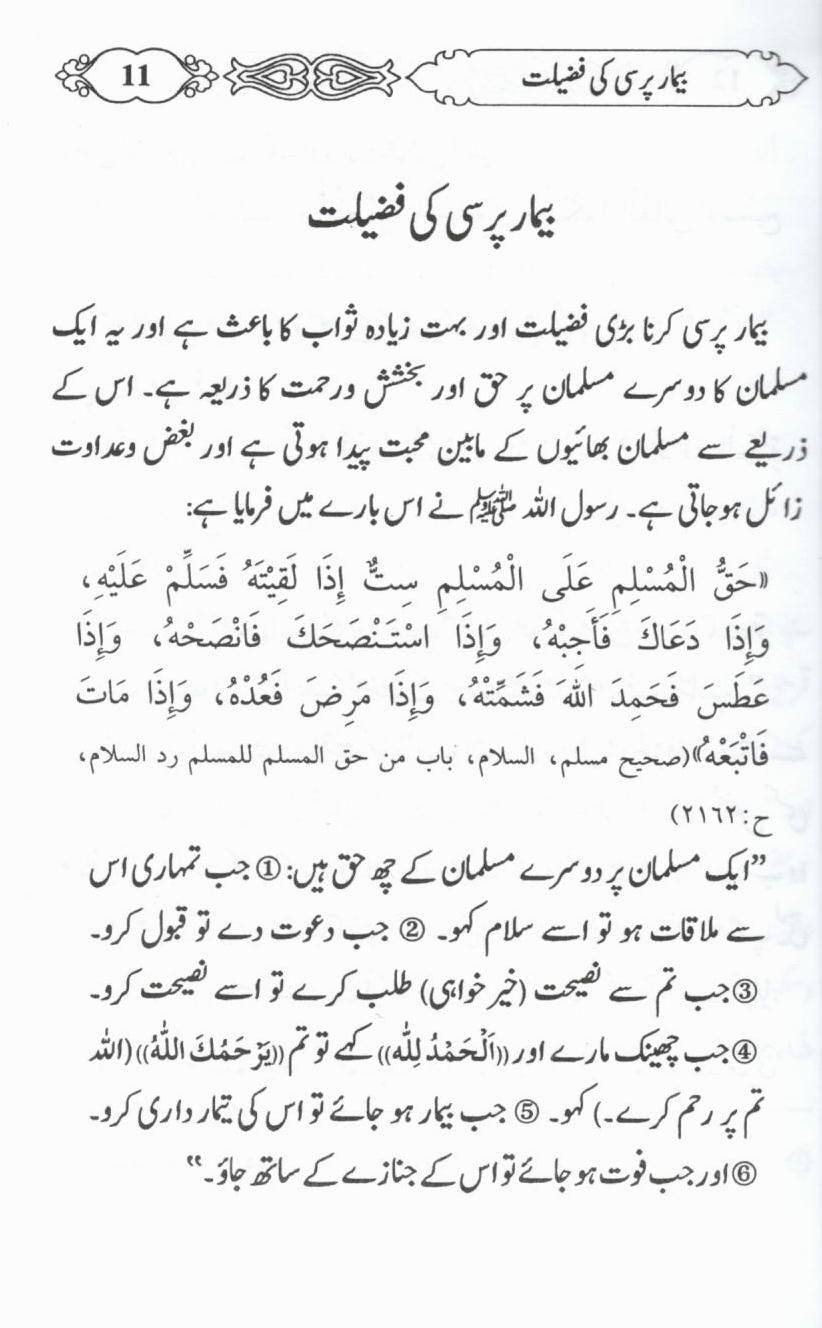 بیمار پرسی کی فضیلت
11
بیمار پرسی کی فضیلت
بیمار پرسی کرنا بڑی فضیلت اور بہت زیادہ ثواب کا باعث ہے اور یہ ایک
مسلمان کا دوسرے مسلمان پر حق اور بخشش ورحمت کا ذریعہ ہے۔ اس کے
ذریعے سے مسلمان بھائیوں کے مابین محبت پیدا ہوتی ہے اور بغض وعداوت
زائل ہوجاتی ہے۔ رسول اللہ ﷺ نے اس بارے میں فرمایا ہے:
«حَقُّ الْمُسْلِمِ عَلَى الْمُسْلِمِ سِتٌّ إِذَا لَقِيْتَهُ فَسَلِّمْ عَلَيْهِ،
وَإِذَا دَعَاكَ فَأَجِبْهُ، وَإِذَا اسْتَنْصَحَكَ فَانْصَحْهُ، وَإِذَا
عَطَسَ فَحَمِدَ اللهَ فَشَمِّتْهُ، وَإِذَا مَرِضَ فَعُدْهُ، وَإِذَا مَاتَ
فَاتْبَعْهُ»(صحيح مسلم، السلام، باب من حق المسلم للمسلم رد السلام،
ح:٢١٦٢)
”ایک مسلمان پر دوسرے مسلمان کے چھ حق ہیں: ① جب تمہاری اس
سے ملاقات ہو تو اسے سلام کہو۔ ② جب دعوت دے تو قبول کرو۔
③جب تم سے نصیحت (خیر خواہی) طلب کرے تو اسے نصیحت کرو۔
④جب چھینک مارے اور ((اَلْحَمْدُ لِلّٰه)) کہے تو تم ((يَرْحَمُكَ اللّٰهُ))(اللہ
تم پر رحم کرے۔) کہو۔ ⑤ جب بیمار ہو جائے تو اس کی تیمار داری کرو۔
⑥اور جب فوت ہو جائے تو اس کے جنازے کے ساتھ جاؤ۔“